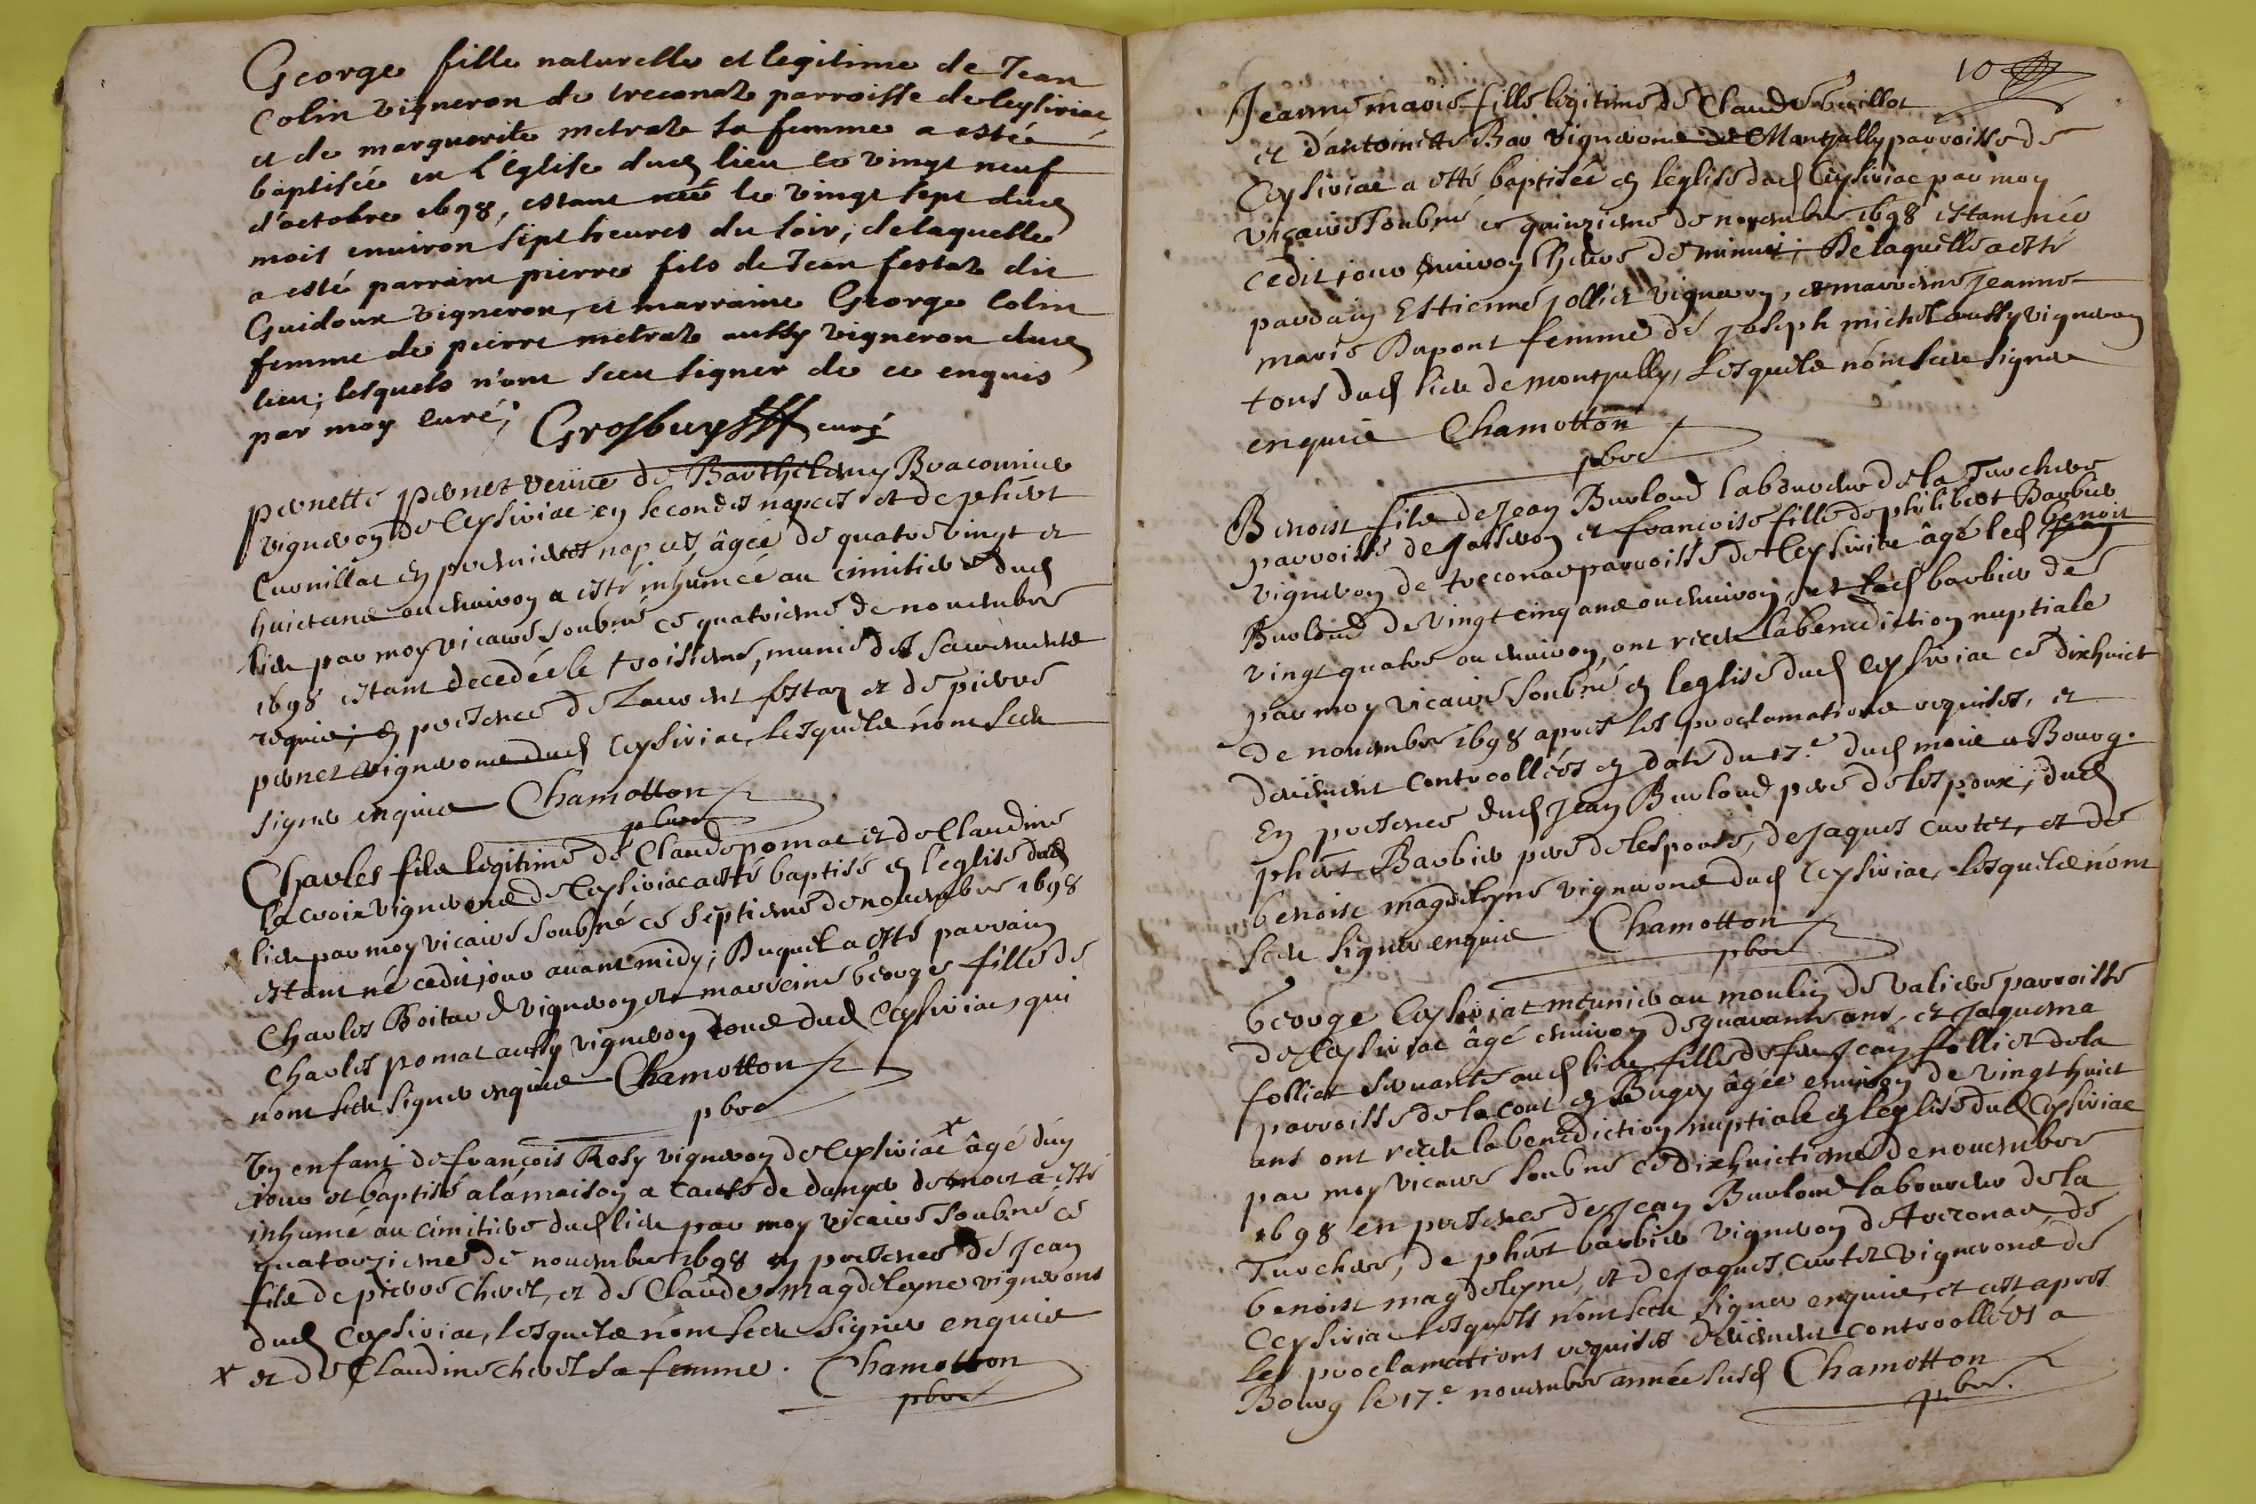 George fille naturelle et legitime de Jean
Colin vigneron de treconat parroisse de Ceysiriac
et de marguerite metrat sa femme a estée
baptisée en l'Eglise dud lieu ce vingt neuf
d'octobre 1698, estant neé le vingt sept dud
mois environ sept heures du soir, de laquelle
a esté parrain pierre fils de Jean festaz dit
Guidoux vigneron, et marraine George Colin
femme de pierre metrat aussy vigneron dud
lieu; lesquels n'ont sceu signer de ce enquis
par moy curé, Grosbuys curé
pernette pernet veüve de Barthelemy Braconnier
vigneron de Ceysiriac en secondes nopces et de phibert
Cuvnillat en premieres nopces, âgée de quatre vingt et
huict ans ou environ a esté inhumée au cimitiere dud
lieu par moy vicaire soubné ce quatrieme de novembre
1698 estant decedée le troisieme, munie des sacrements
requis; en presence de Laurent festaz et de pierre
pernet vignerons dud Ceysiriac, lesquels nont sceu
signer enquis Chamotton
pbre
Charles fils legitime de Claude pomat et de Claudine
la croix vignerons de Ceysiriac a esté baptisé en l'eglise dud
lieu par moy vicaire soubné ce septieme de novembre 1698
estant né cedit jour avant midy; Duquel a esté parrain
Charles Boitard vigneron et marreine George fille de
Charles pomat aussy vigneron tous dud Ceysiriac, qui
nont sceu signer enquis Chamotton
pbre
Un enfant de françois Rosy vigneron de Ceysiriac x âgé d'un
jour et baptisé a la maison a cause de danger de mort a esté
inhumé au cimitiere dud lieu par moy vicaire soubné ce
quatorzieme de novembre 1698 en presence de Jean
fils de pierre Chevet, et de Claude Magdeleyne vignerons
dud Ceysiriac, lesquels nont sceu signer enquis
x et de Claudine chevet sa femme. Chamotton
pbre
10
Jeanne marie fille legitime de Claude Cuillot
et d'antoinette Bar vignerons de Montjully parroisse de
Ceysiriac a esté baptisée en léglise dud Ceysiriac par moy
vicaire soubné ce quinzieme de novembre 1698 estant née
cedit jour environ lheure de minuit; De laquelle a esté
parrain Estienne jolliet vigneron, et marreine Jeanne
marie Dupont femme de joseph michel aussy vigneron
tous dud lieu de montjully, Lesquels nont sceu signer
enquis Chamotton
pbre
Benoist fils de Jean Burloud laboureur de la Turchere
parroisse de Jasseron et françoise fille de philibert Barbier
vigneron de treconas parroisse de Ceysiriac âgé led Jean benoit
Burloud de vingt cinq ans ou environ, et lad barbier de
vingt quatre ou environ, ont receu la benediction nuptiale
par moy vicaire soubné en leglise dud Ceysiriac ce dixhuict
de novembre 1698 apres les proclamations requises, et
deüement controollées en date du 17.e dud mois a Bourg.
En presence dud Jean Burloud pere de lespoux; dud
phibert Barbier pere de lespouse, de Jaques curtet, et de
benoist magdeleyne vignerons dud Ceysiriac, lesquels nont
sceu signer enquis Chamotton
pbre
George Ceysiriat meunier au moulin de valiere parroisse
de Ceysiriac âgé environ de quarante ans, et Jaquema
folliet servante aud lieu fille de feu Jean folliet de la
parroisse de la Cout en Bugey âgée environ de vingt huict
ans ont receu la benediction nuptiale en leglise dud Ceysiriac
par moy vicaire soubné ce dixhuictieme de novembre
1698 en presence de Jean Burloud laboureur de la
Turchere, de phibert barbier vigneron de treconas de
benoist magdeleyne, et de Jaques curtet vignerons de
Ceysiriac lesquels nont sceu signer enquis, et cest apres
les proclamations requises deüement controollées a
Bourg le 17.e novembre année susd Chamotton
pbre.